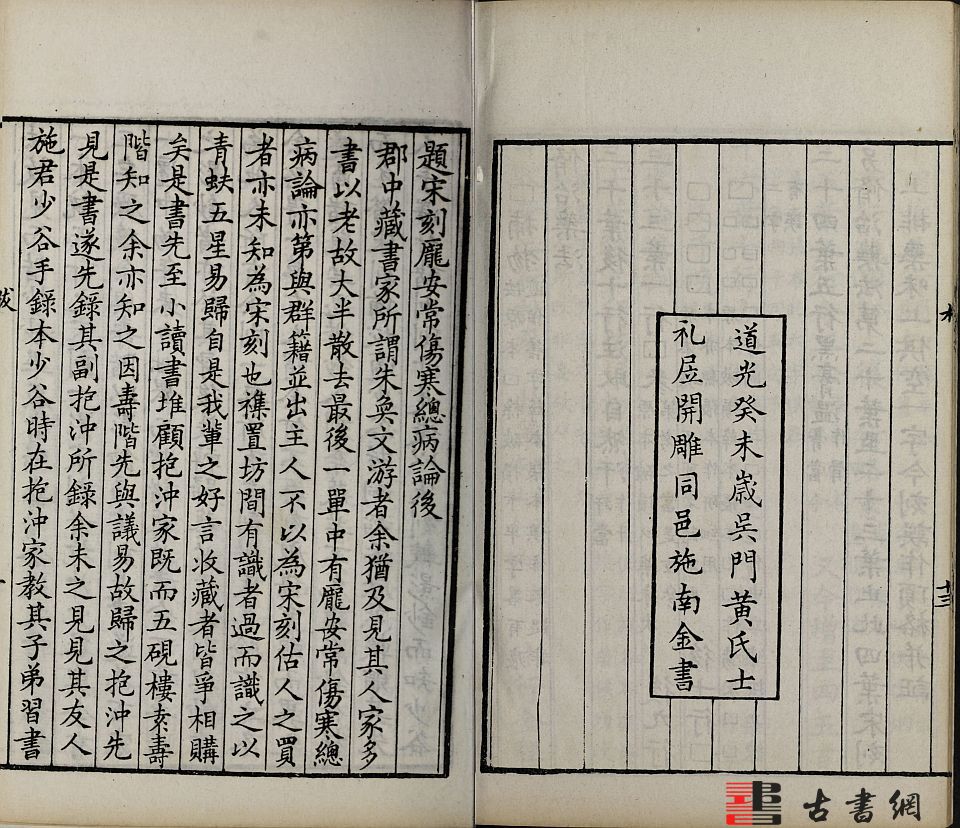 道光癸未歲吳門黃氏士
礼居開雕同邑施南金書
題宋刻龐安常傷寒總病論後
郡中藏書家所謂朱奐文游者余猶及見其人家多
書以老故大半散去最後一單中有龐安常傷寒總
病論亦第與群籍並出主人不以為宋刻估人之買
者亦未知為宋刻也襍置坊間有識者過而識之以
青蚨五星易歸自是我輩之好言收藏者皆爭相購
矣是書先至小讀書堆顧抱沖家既而五硯樓袁壽
階知之余亦知之因壽階先與議易故歸之抱沖先
見是書遂先錄其副抱沖所錄余未之見見其友人
施君少谷手錄本少谷時在抱沖家教其子弟習書
跋
一
十三
古書網